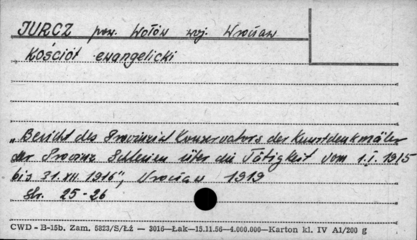 JURCZ pow. Wołów woj. Wrocław
Kościół ewangelicki
„Bericht des Provinzial Konservators der Kunstdenkmäler
der Provinz Schlesien über die Tätigkeit vom 1.I.1915
bis 31.XII 1916", Wrocław 1919
Str. 25-26
CWD - B-15b. Zam. 5823/S/Łż — 3016—Łak—15.11.56—4.000.000—Karton kl. IV A1/200 g